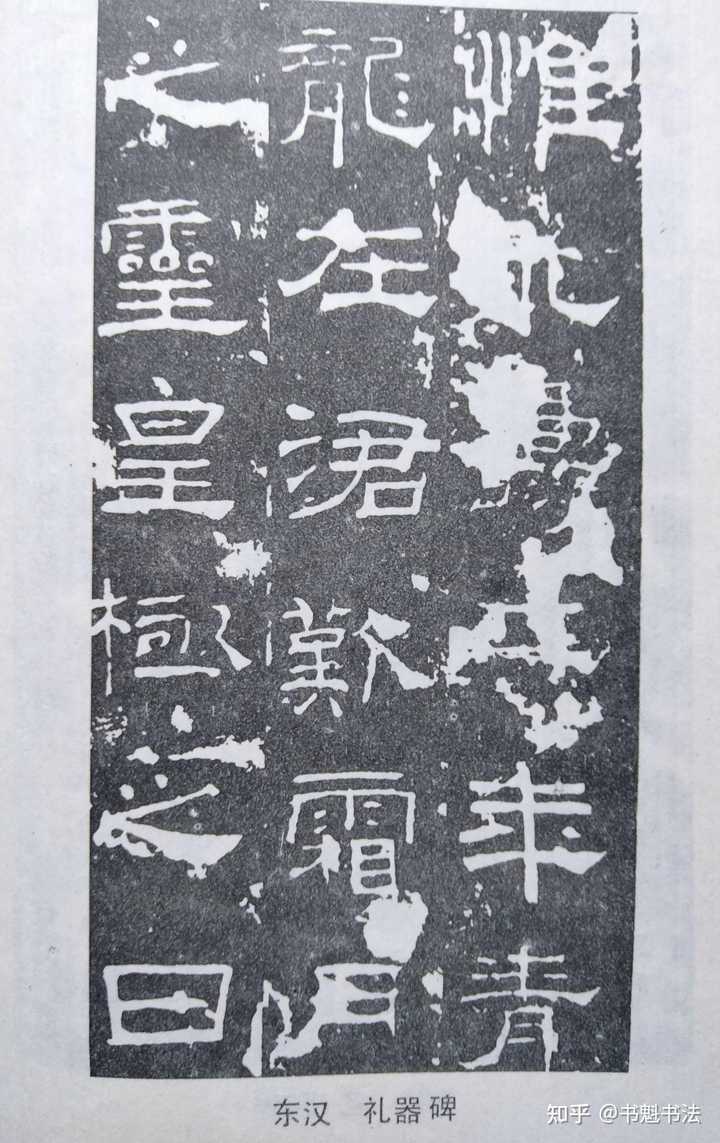 惟永壽二年青
龍在涒歎霜月
之靈皇極之日
东汉 礼器碑
知乎 @书魁书法